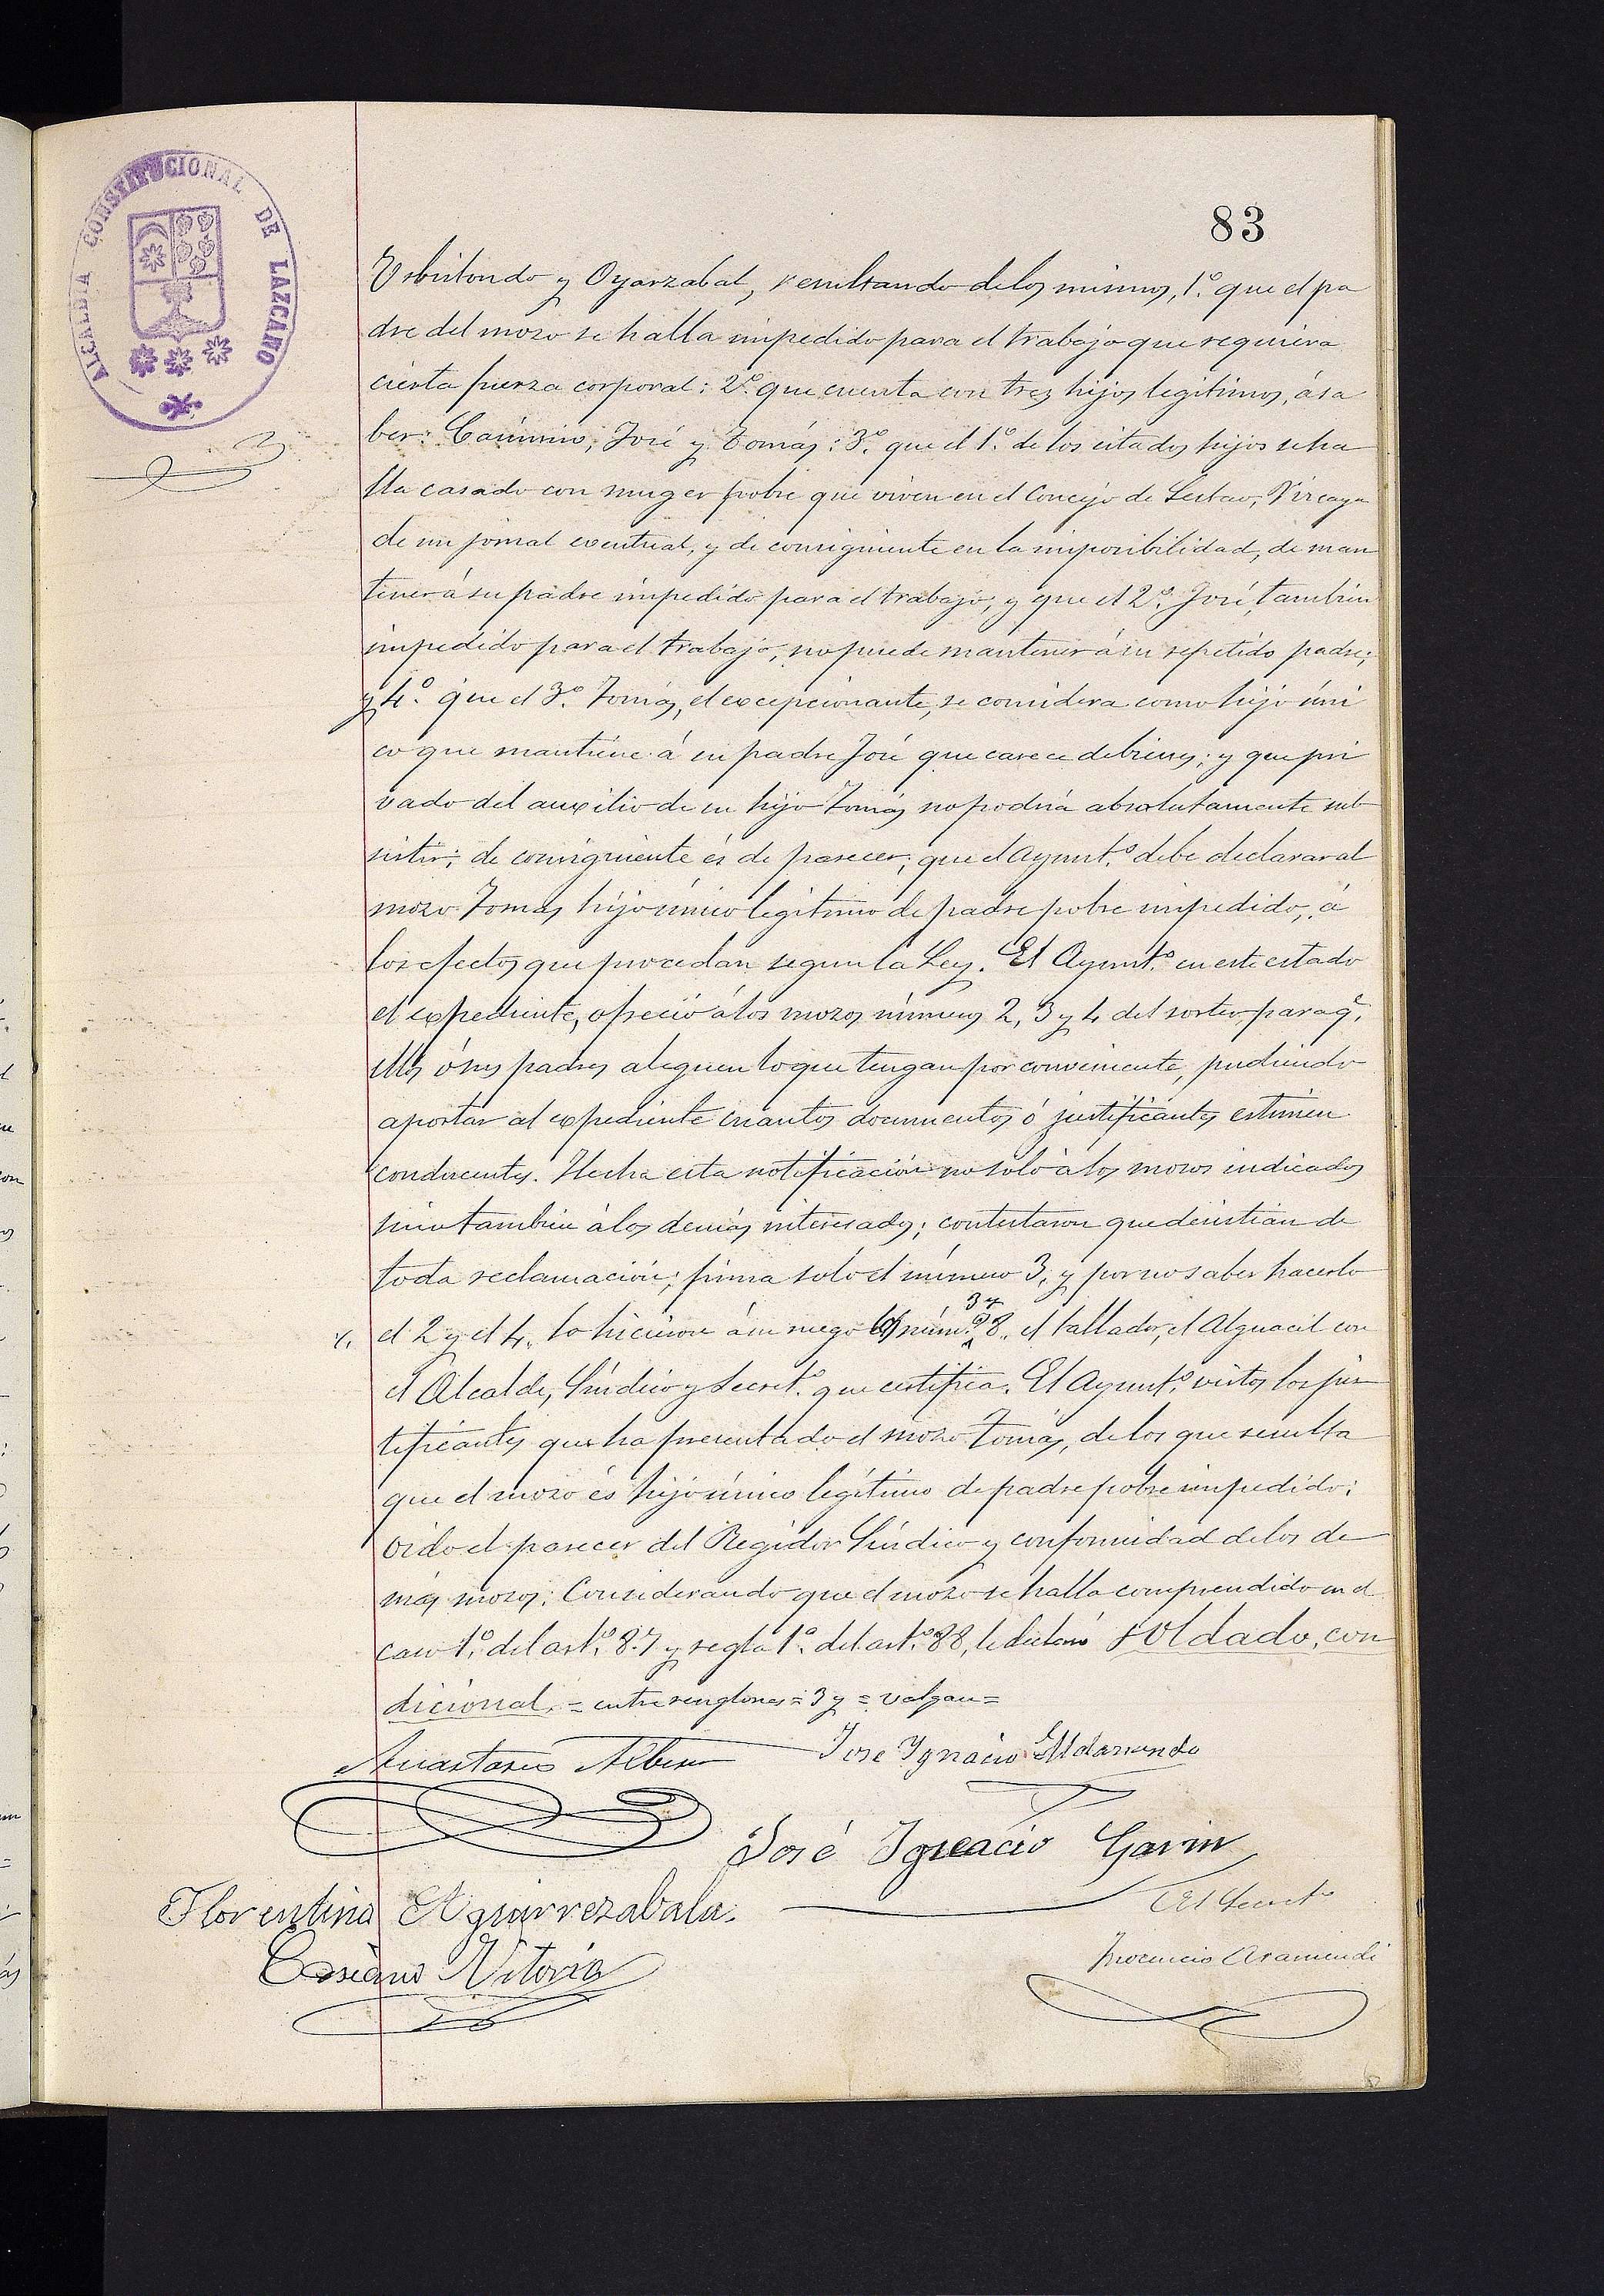 ALCALDIA CONSTITUCIONAL DE LAZCANO
83
Urbiztondo y Oyarzabal, resultando de los mismos, 1.º que el pa
dre del mozo se halla impedido para el trabajo que requiera
cierta fuerza corporal: 2.º que cuenta con tres hijos legitimos, á sa
ber: Casimiro, José y Tomás: 3.º que el 1.º de los citados hijos se ha
lla casado con muger pobre que viven en el Concejo de Sestao, Vizcaya
de un jornal eventual, y de consiguiente en la imposibilidad, de man
tener á su padre impedido para el trabajo, y que el 2.º José, tambien
impedido para el trabajo, no puede mantener á su repetido padre;
y 4.º que el 3.º Tomás, el excepcionante, se considera como hijo úni
co que mantiene á su padre José que carece de bienes; y que pri
vado del auxilio de su hijo Tomás no podria absolutamente sub
sistir; de consiguiente és de parecer; que el Ayunt.º debe declarar al
mozo Tomás hijo único legitimo de padre pobre impedido, á
los efectos que procedan segun la Ley. El Ayunt.º en este estado
el expediente, ofreció á los mozos números 2, 3 y 4 del sorteo para q.e
ellos ó sus padres aleguen lo que tengan por conveniente, pudiendo
aportar al expediente cuantos documentos ó justificantes estimen
conducentes. Hecha esta notificación no solo á los mozos indicados
sino tambien á los demás interesados; contestaron que desistian de
toda reclamación; firma solo el número 3, y por no saber hacerlo
3 y
el 2 y el 4, lo hicieron á su ruego los núm.s 8, el tallador, el Alguacil con
el Alcalde, Síndico y Secret.º que certifica. El Ayunt.º vistos los jus
tificantes que ha presentado el mozo Tomás, de los que resulta
que el mozo és hijo único legítimo de padre pobre impedido;
oido el parecer del Regidor Síndico y conformidad de los de
más mozos: Considerando que el mozo se halla comprendido en el
caso 1.º del art.º 87 y regla 1.ª del art.º 88, le declaró soldado, con
dicional. = entre renglones = 3 y = valgan =
Anastasio Albisu José Ignacio Aldasoro
José Ignacio Garin
Florentino Aguirrezabala.
El Secret.º
Casiano Vitoria
Inocencio Aramendi